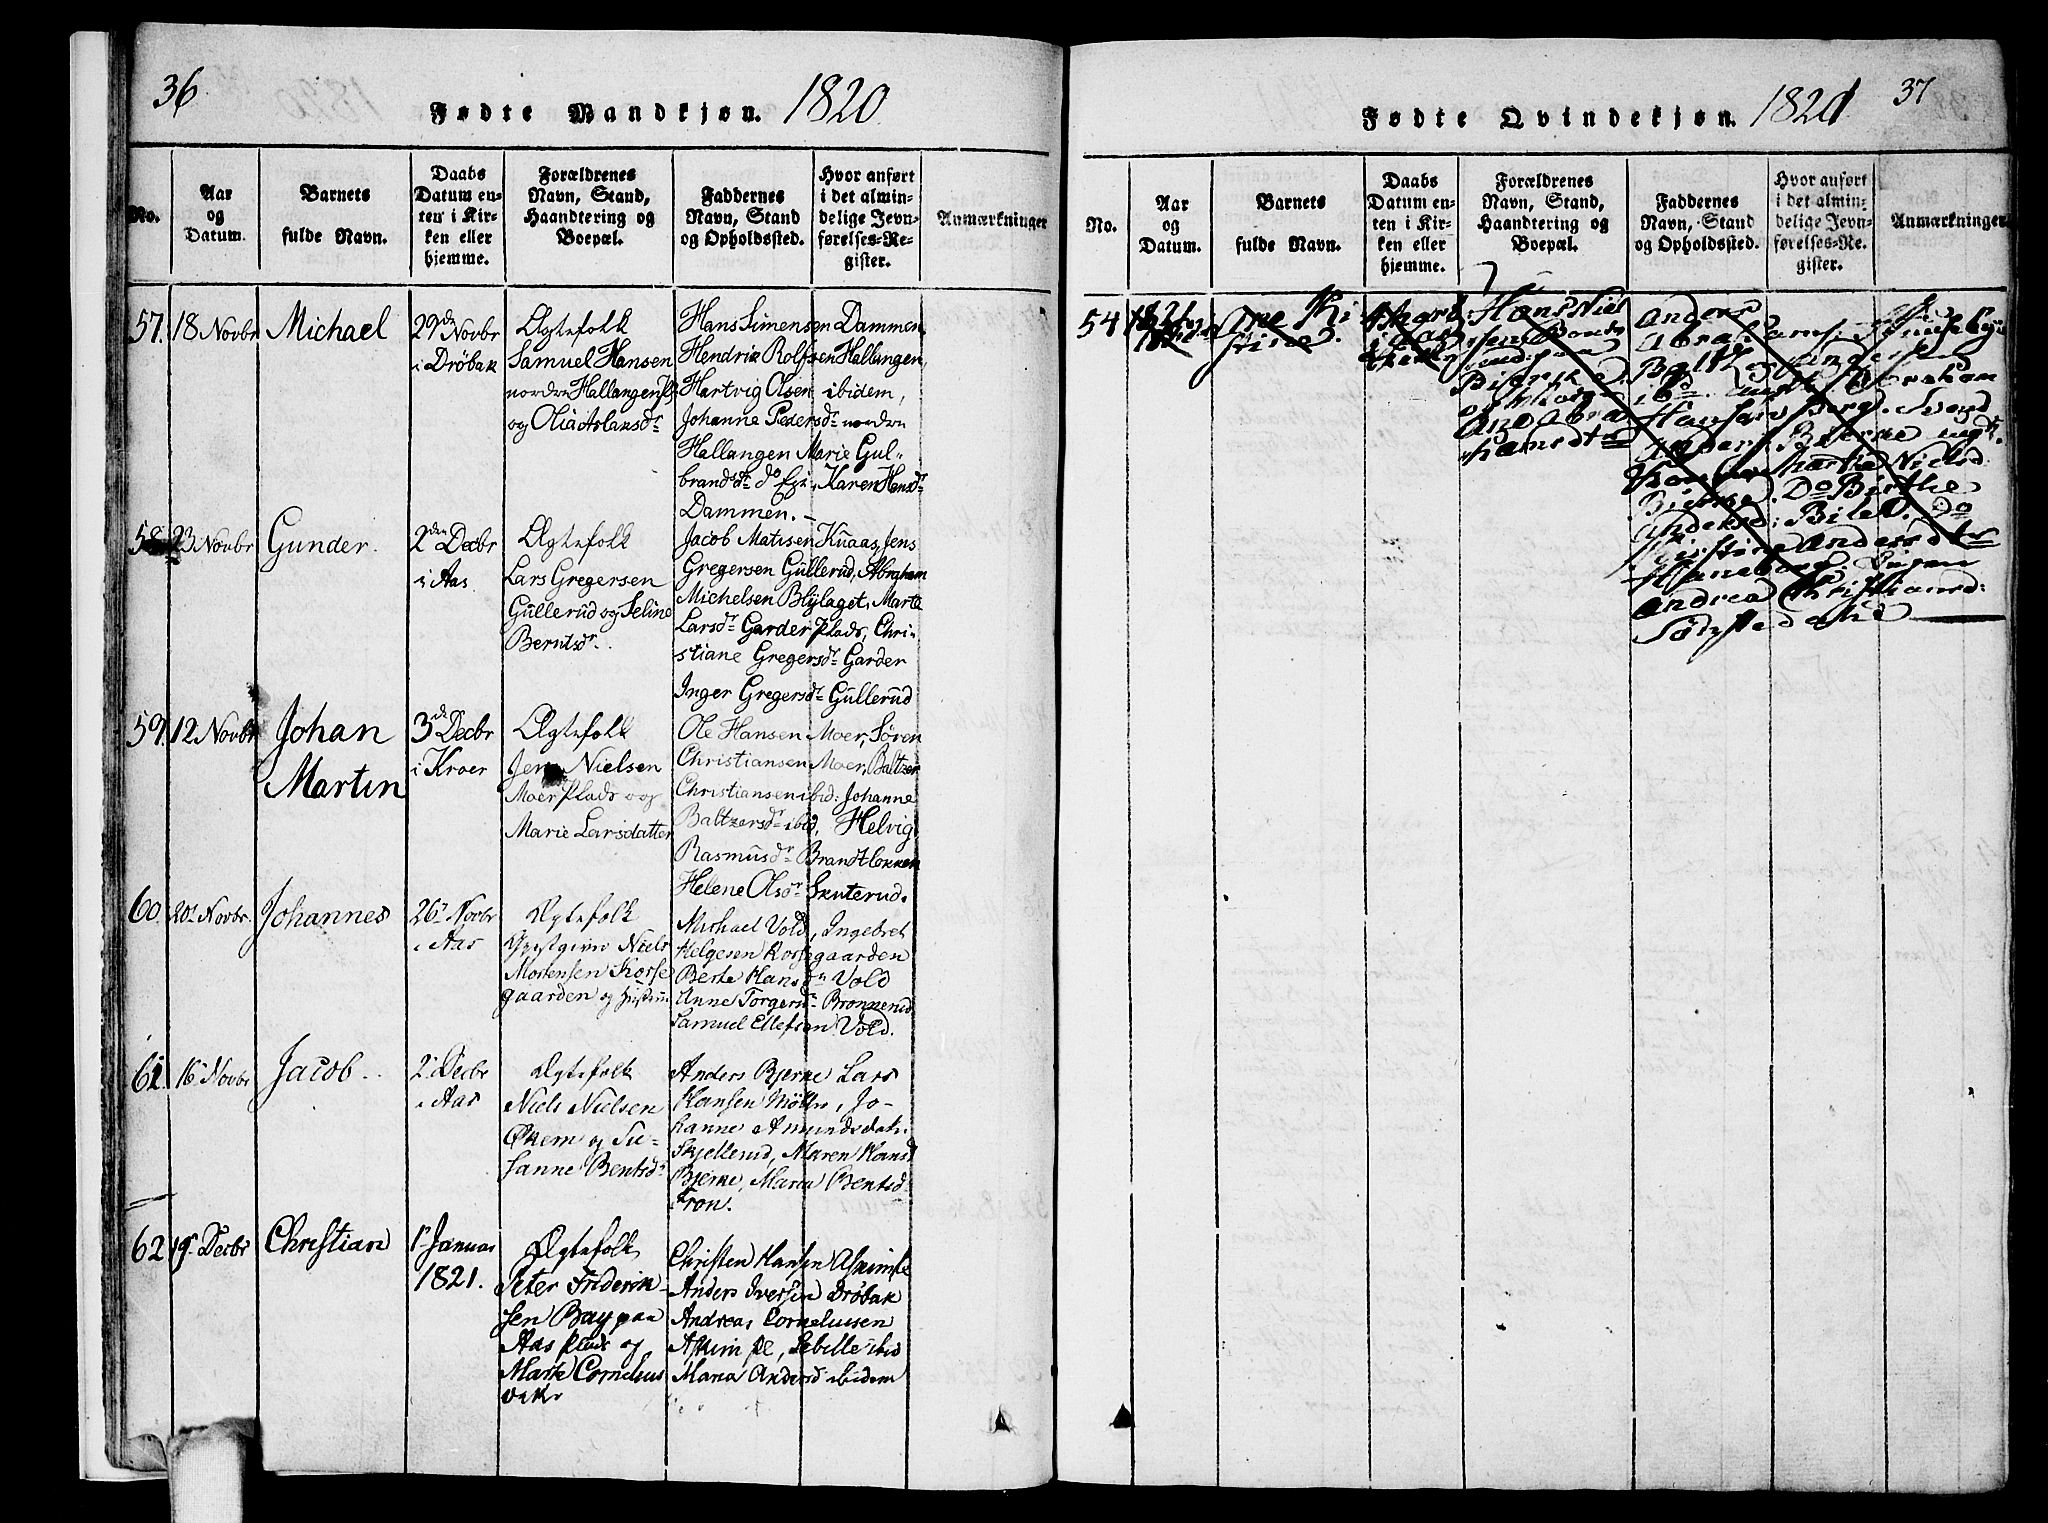 36.
Fødte Mandkjøn. 1820
No.
Aar
og
Datum.
Barnets
fulde Navn.
Daabs
Datum en-
ten i Kir-
ken eller
hjemme.
Forældrenes
Navn, Stand,
Haandtering og
Boepæl.
Faddernes
Navn, Stand
og Opholdssted.
Hvor anført
i det almin-
delige Jevn-
førelses-Re-
gister.
Anmærkninger
57.
18 Novbr
Michael
29de Novbr
i Drøbak
Ægtefolk
Samuel Hansen
nordre Hallangen
og Olia Aslaksdr
Hans Simensen Dammen,
Hendrik Rolfsen Hallangen,
Hartvig Olsen ibidem,
Johanne Pedersdr nordre
Hallangen Marie Gul-
brandsdr do Karen Hansdr
Dammen.
58
23 Novbr
Gunder.
2den Decbr
i Aas
Ægtefolk
Lars Gregersen
Gullerud og Seline
Berntsdr.
Jacob Matisen Knaas, Jens
Gregersen Gullerud, Abraham
Michelsen Blylaget, Marte
Larsdr Garder Plads, Chri-
stiane Gregersdr Garder
Inger Gregersdr Gullerud
59.
12 Novbr
Johan
Martin
3de Decbr
i Kroer
Ægtefolk
Jens Nielsen
Moer Plads og
Marie Larsdatter
Ole Hansen Moer, Søren
Christiansen Moer, Baltzer
Christiansen ibid: Johanne
Baltzersdr ibid, Helvig
Rasmusdr Brandtlokken
Helene Olsdr Skuterud.
60.
20r Novbr.
Johannes
26r Novbr
i Aas
Ægtefolk
Niels
Mortensen Korse
gaarden og
Michael Vold, Ingebret
Helgesen Korsegaarden
Berte Hansdr Vold
Anne Torgersdr Bronnerud
Samuel Ellefsen Vold.
61.
16r Novbr
Jacob.
2r Decbr
i Aas
Ægtefolk
Niels Nielsen
Økern og Su-
sanne Bentsdr
Anders Bjerke Lars
Hansen Mölln, Jo-
hanne Amundsdatr
Skjellerud, Maren Hansd
Bjerke, Maria Bentsd
Tron.
62
19r Decbr
Christian
1r Januar
1821.
Ægtefolk
Peter Friderik-
sen Bay paa
Aas Plads og
Marte Cornelius
datr
Christen Hansen Askim
Anders Iversen Drøbak
Andreas Corneliusen
Askim Pl, Sebille ibid
Maria Andersd ibidem
37
Fødte Qvindekjøn. 1821
No.
Aar
og
Datum.
Barnets
fulde Navn.
Daabs
Datum en-
ten i Kir-
ken eller
hjemme.
Forældrenes
Navn, Stand,
Haandtering og
Boepæl.
Faddernes
Navn, Stand
og Opholdssted.
Hvor anført
i det almin-
delige Jevn-
førelses-Re.
gister.
Anmærkninger
54
1821
Hans Niel
sen
Bjerke
Ane Abra
hamsdtr
Anders
Abrahams.
Hansen Berg. Svend
Anders. Bjerke
Martha Nielsd:
Bjerke. Do Birthe
Andersd: Do
Kirstine Andersdtr
Andrea Christiansd: